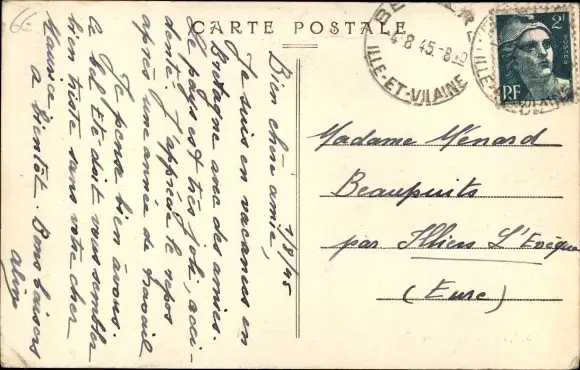 6€
CARTE POSTALE
4-8 45
ILLE-ET-VILAINE
2F
POSTES
RF
1/8/45
Bien chère amie,
Je suis en vacances en
Bretagne avec des amies.
Le pays est très joli, acci-
denté. J'apprécie le repos
après une année de travail
Je pense bien à vous.
Ce bel Eté doit vous sembler
bien triste sans votre cher
Maurice
à bientôt. Bons baisers
Madame Ménard
Beaupuits
par Illiers L'Evêque
(Eure)